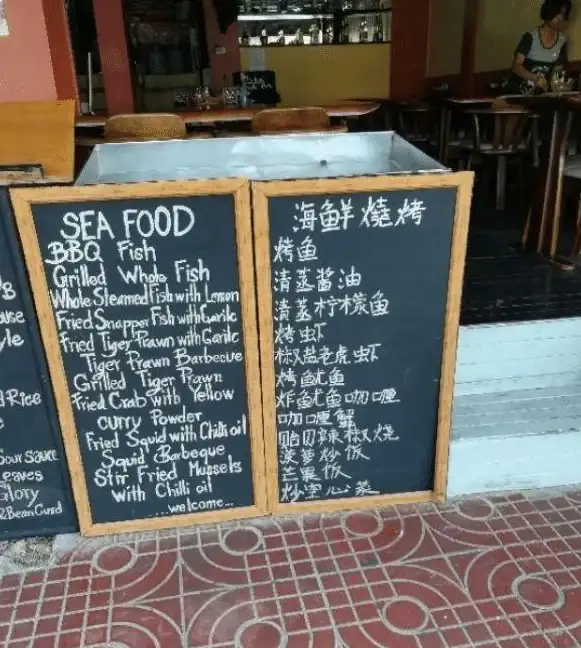 SEA FOOD
BBQ Fish
Grilled Whole Fish
Whole Steamed Fish with Lemon
Fried Snapper Fish with Garilc
Fried Tiger Prawn with Garilc
Tiger Prawn Barbecue
Grilled Tiger Prawn
Fried Crab with Yellow
curry Powder
Fried Squid with Chilli oil
Squid Barbeque
Stir Fried Mussels
with Chilli oil
...welcome...
海鮮 燒烤
烤鱼
清蒸酱油
清蒸柠檬鱼
烤虾
椒盐老虎虾
烤鱿鱼
炸鱿鱼咖喱
咖喱蟹
贴贝辣椒烧
菠萝炒饭
芒果饭
炒空心菜
d Rice
our Sauce
Leaves
Glory
&BeanCurd